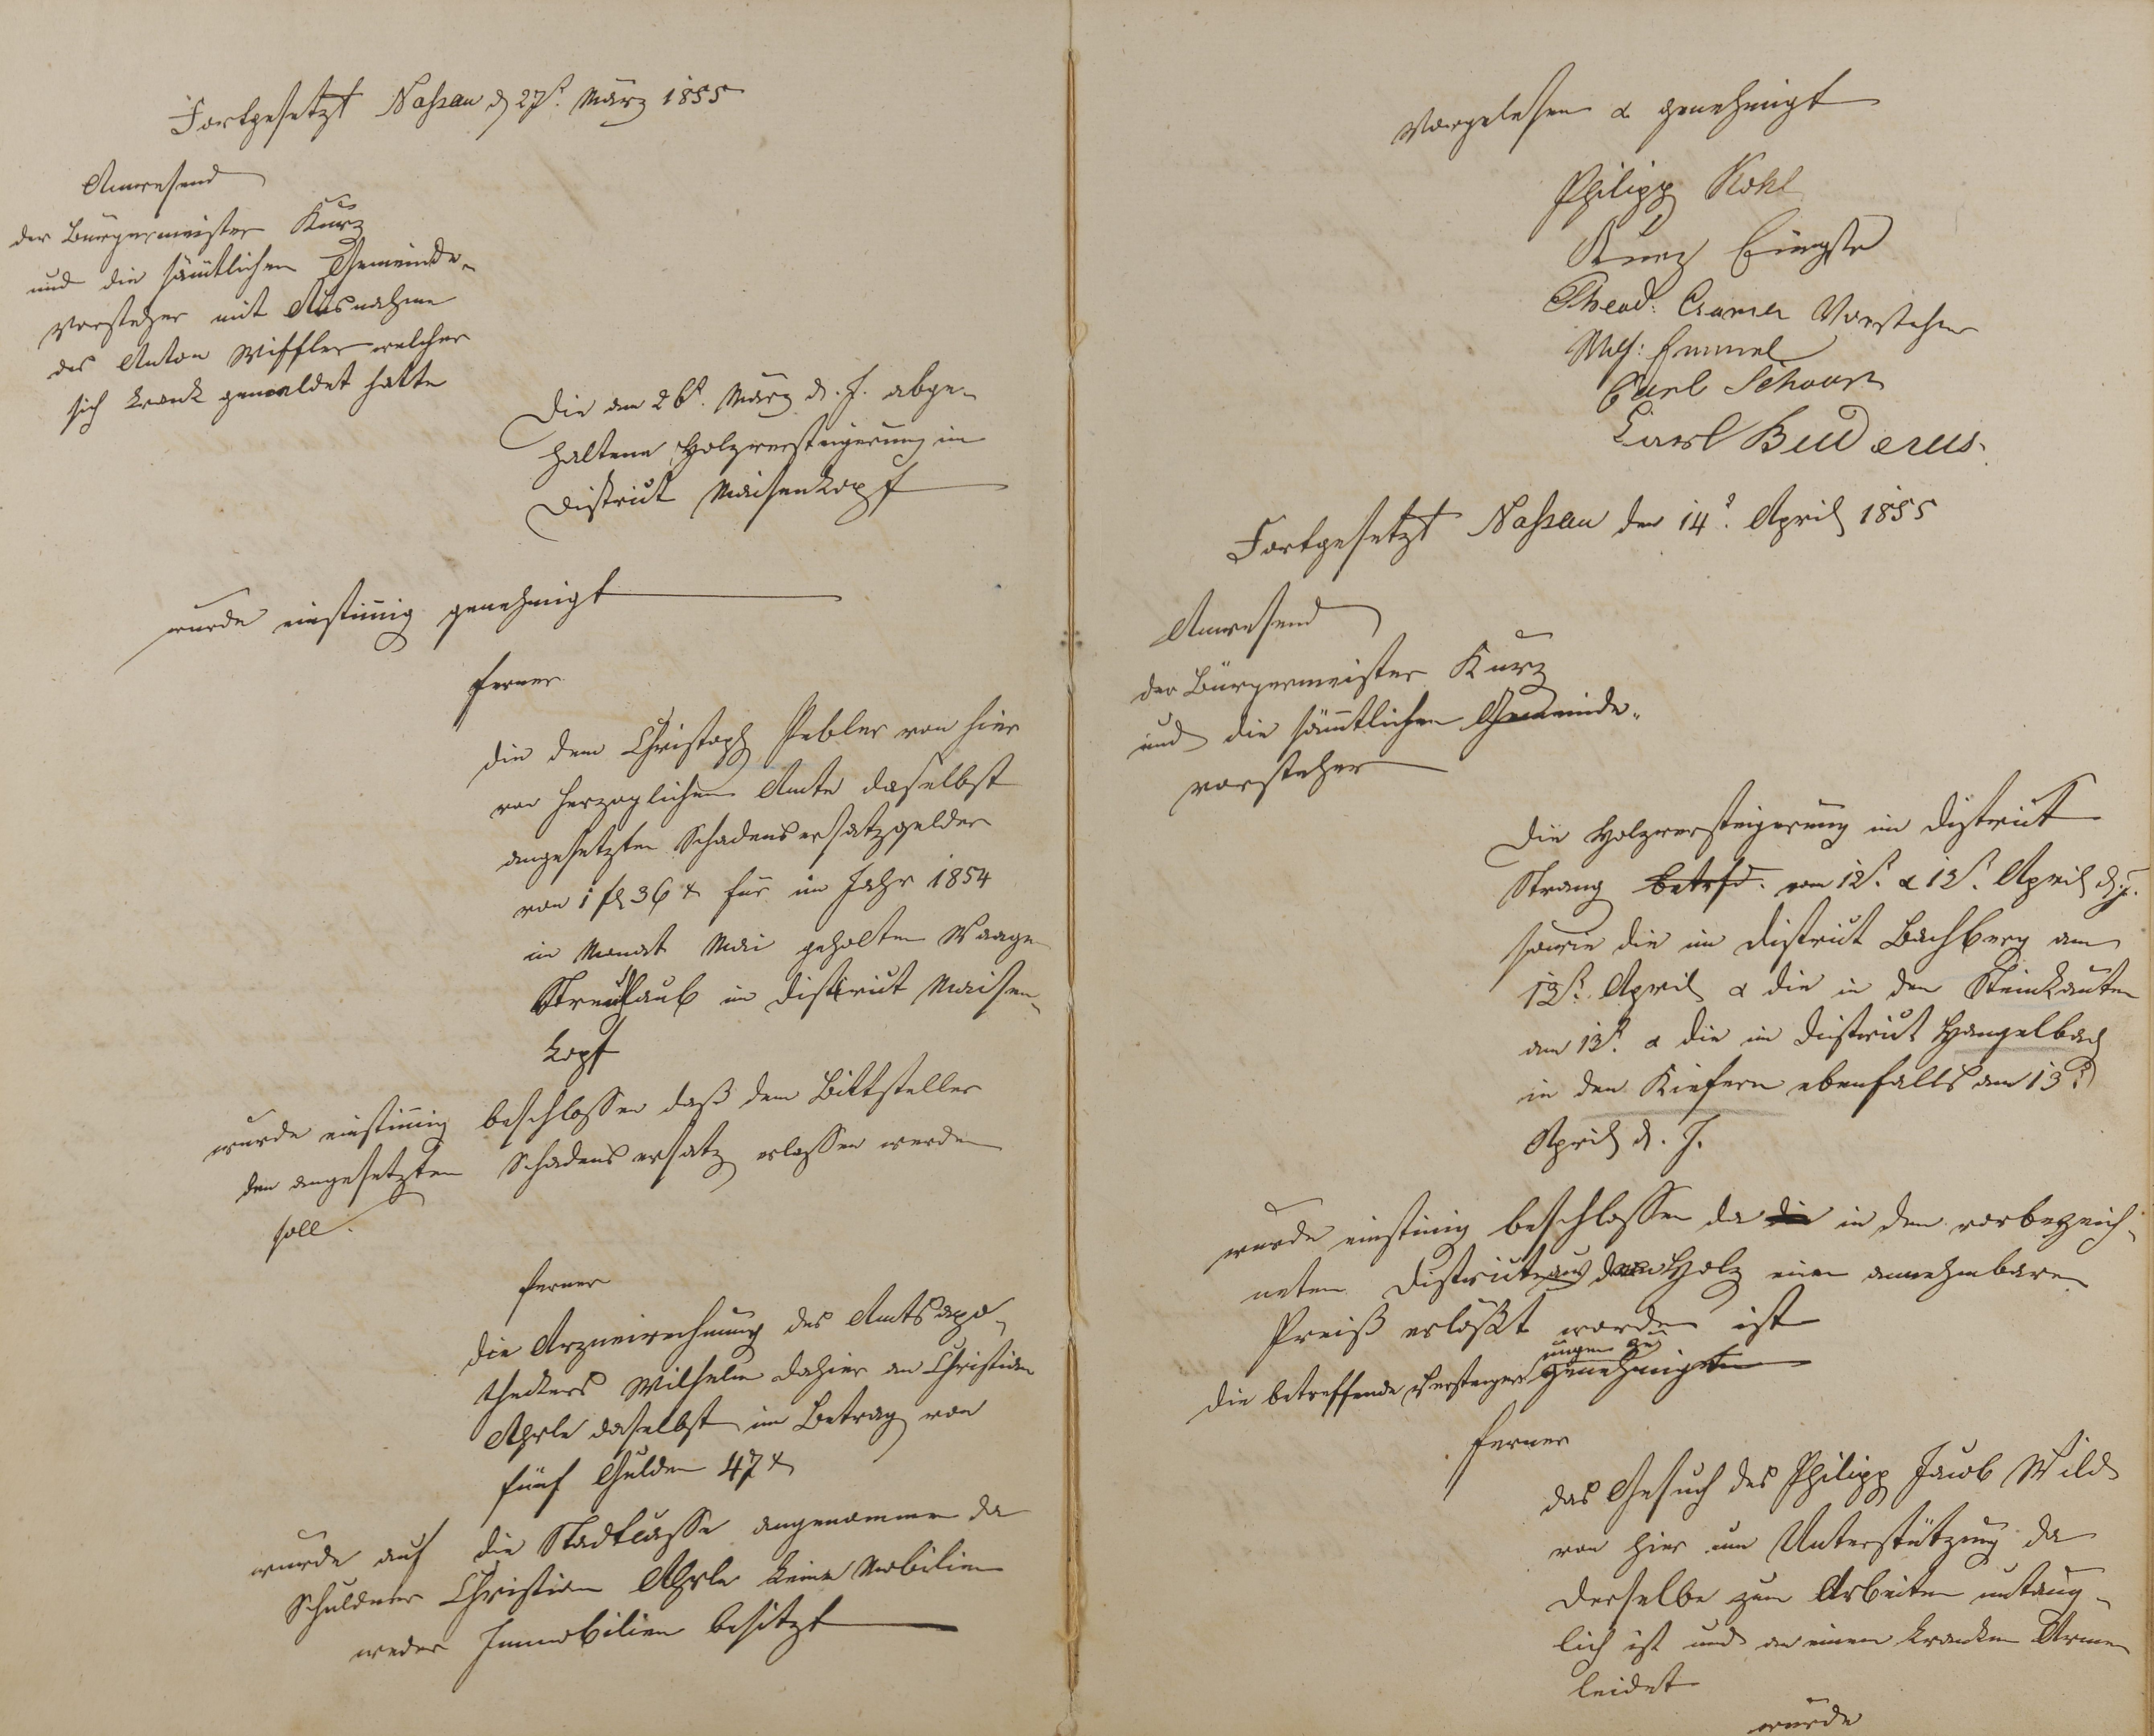 Fortgesetzt Nassau d 27t. März 1855
Anwesend
der Bürgermeister Kurz
und die sämtlichen Gemeinde-
vorsteher mit Ausnahme
des Anton Wiffler welcher
sich krank gemeldet hatte
Die am 26t. März d. J. abge-
haltene Holzversteigerung im
District Maisenkopf
wurde einstimmig genehmigt
ferner
die dem Christoph von hier
von Herzoglichem Amte daselbst
angesetzten Schadensersatzgelder
von 1 fl 36 x für im Jahr 1854
im Monat Mai geholten Waagen
Streulaub im District Maisen-
kopf
wurde einstimmig beschlossen daß dem Bittsteller
den angesetzten Schadensersatz erlassen werden
soll.
ferner
die Arzneirechnung des Amtsapo-
thekers Wilhelm dahier an Christian
daselbst im Betrag von
fünf Gulden 47 x
wurde auf die Stadtcasse angenommen da
Schuldner Christian keine Mobilien
weder Immobilien besitzt
Vorgelesen & genehmigt
Philipp Kohl
Kurz Bürgstr
Theod: Cramer Vorsteher
Wlh: Emmel
Carl Schoor
Carl Buderus.
Fortgesetzt Nassau den 14t. April 1855
Anwesend
der Bürgermeister Kurz
und die sämtlichen Gemeinde-
vorsteher
Die Holzversteigerung im District
Strang betrfd. vom 12t. & 13t. April d. J.
sowie die im District Bachberg am
13t. April & die in den Steinkauten
am 13t. & die im District Hangelbach
in den Kiefern ebenfalls am 13t
April d. J.
wurde einstimmig beschlossen da die in den vorbezeich-
neten District aus dem Holz einen annehmbaren
Preiß erlößt worden ist
die betreffende Versteigerungen zu genehmigten
ferner
das Gesuch des Philipp Jacob Wild
von hier um Unterstützung da
derselbe zum Arbeiten untaug-
lich ist und an einem kranken Arme
leidet
wurde